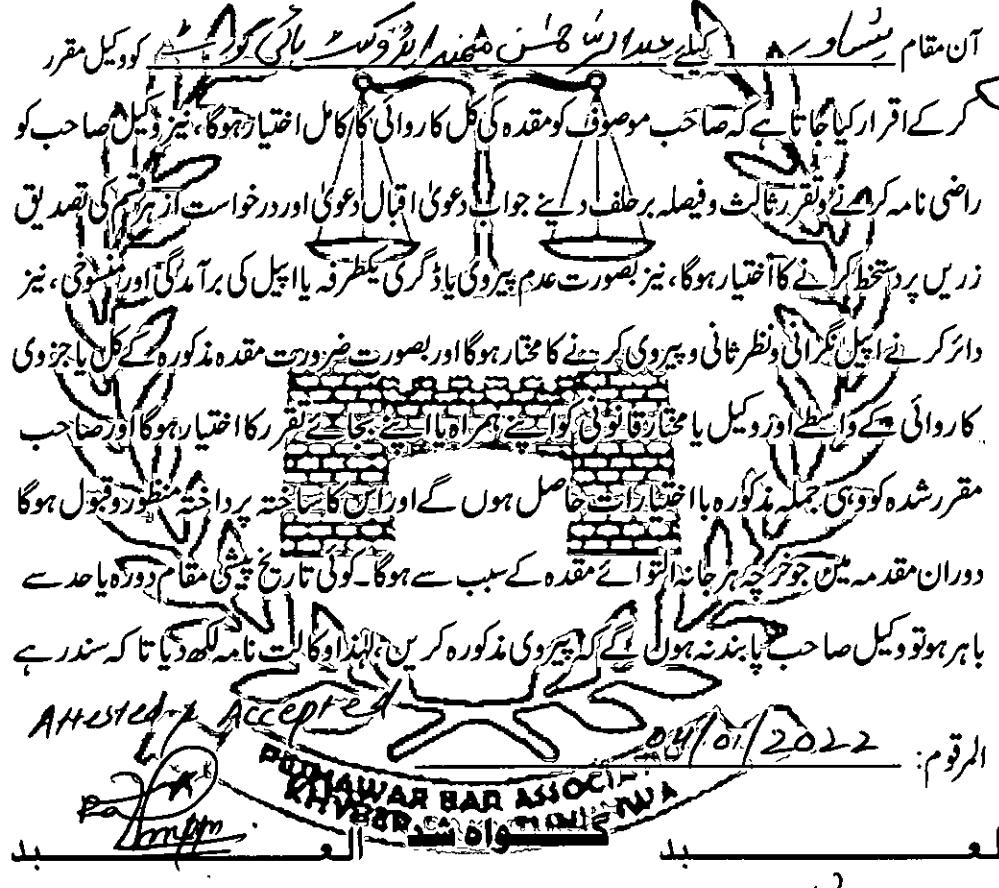 آن مقام پشاور کیلئے مہمند ایڈوکیٹ ہائی کورٹ کو وکیل مقرر
کر کے اقرار کیا جاتا ہے کہ صاحب موصوف کو مقدہ کی کل کاروائی کا کامل اختیار ہوگا، نیز وکیل صاحب کو
راضی نامہ کرنے وتقرر ثالث و فیصلہ بر حلف دینے جواب دعویٰ اقبال دعویٰ اور درخواست از ہر قسم کی تصدیق
زریں پر دستخط کرنے کا اختیار ہوگا، نیز بصورت عدم پیروی یا ڈگری یکطرفہ یا اپیل کی برآمدگی اور منسوخی، نیز
دائر کرنے اپیل نگرانی ونظر ثانی و پیروی کرنے کا مختار ہوگا اور بصورت ضرورت مقدہ مذکورہ کے کل یا جزوی
کاروائی کے واسطے اور وکیل یا مختار قانونی کو اپنے ہمراہ یا اپنے بجائے تقرر کا اختیار ہوگا اور صاحب
مقرر شدہ کو وہی جملہ مذکورہ بااختیارات حاصل ہوں گے اور اس کا ساختہ پرداختہ منظور وقبول ہوگا
دوران مقدمہ میں جو خرچہ ہرجانہ التوائے مقدہ کے سبب سے ہوگا۔ کوئی تاریخ پیشی مقام دورہ یا حد سے
باہر ہو تو وکیل صاحب پابند نہ ہوں گے کہ پیروی مذکورہ کریں، لہٰذا وکالت نامہ لکھ دیا تاکہ سندر ہے
Attested & Accepted
المرقوم: 04/01/2022
PESHAWAR BAR ASSOCI
KHYBER
گواہ شد
العبد
العبد